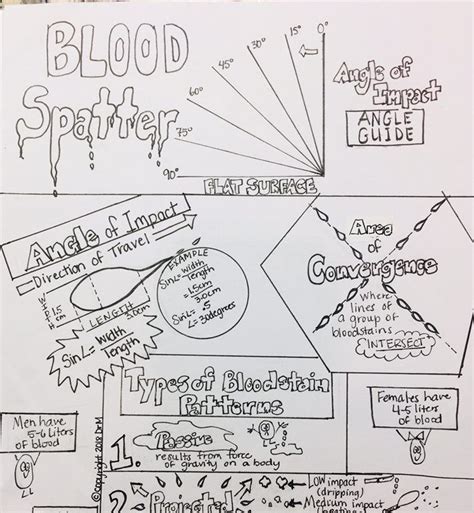 BLOOD
Spatter
0°
15°
30°
45°
60°
75°
90°
FLAT SURFACE
Angle of
Impact
ANGLE
GUIDE
Angle of Impact
Direction of Travel
WIDTH
1.5
cm
LENGTH
3.0cm
SinL= width
length
EXAMPLE
SinL= width
length
=1.5cm
3.0cm
SinL= .5
L= 30degrees
Area
of
Convergence
Where
lines of
a group of
bloodstains
INTERSECT
Types of Bloodstain
Patterns
Men have
5-6 liters
of blood
Females have
4-5 liters
of blood
1.
Passive
results from force
of gravity on a body
©Copyright 2018 DHM
2.
Projected
LOW impact
(dripping)
Medium impact